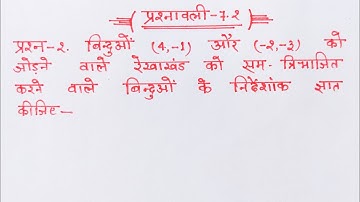 प्रश्नावली-7.2
प्रश्न-2. बिन्दुओं (4,-1) और (-2,-3) को
जोड़ने वाले रेखाखंड को सम-त्रिभाजित
करने वाले बिन्दुओं के निर्देशांक ज्ञात
कीजिए—